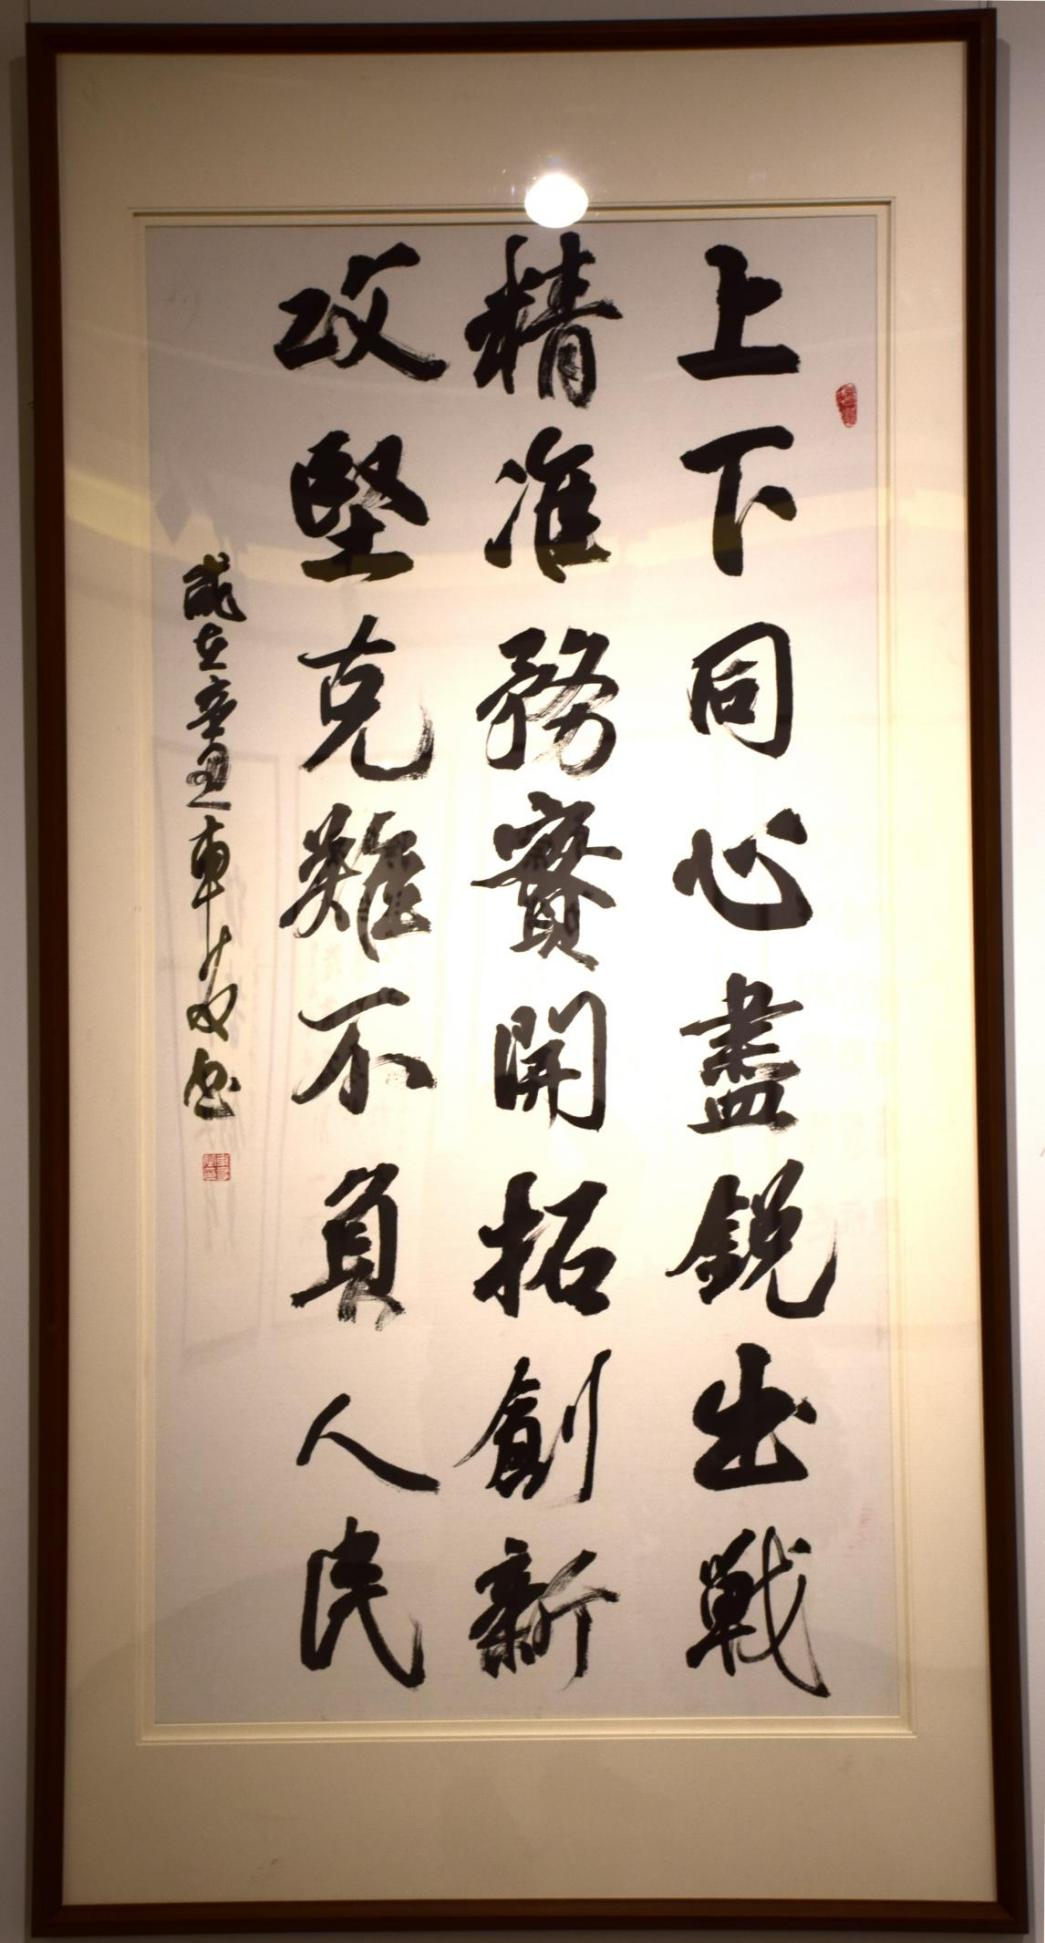 上下同心盡鋭出戰
精准務實開拓創新
攻堅克難不負人民
歲在辛丑車